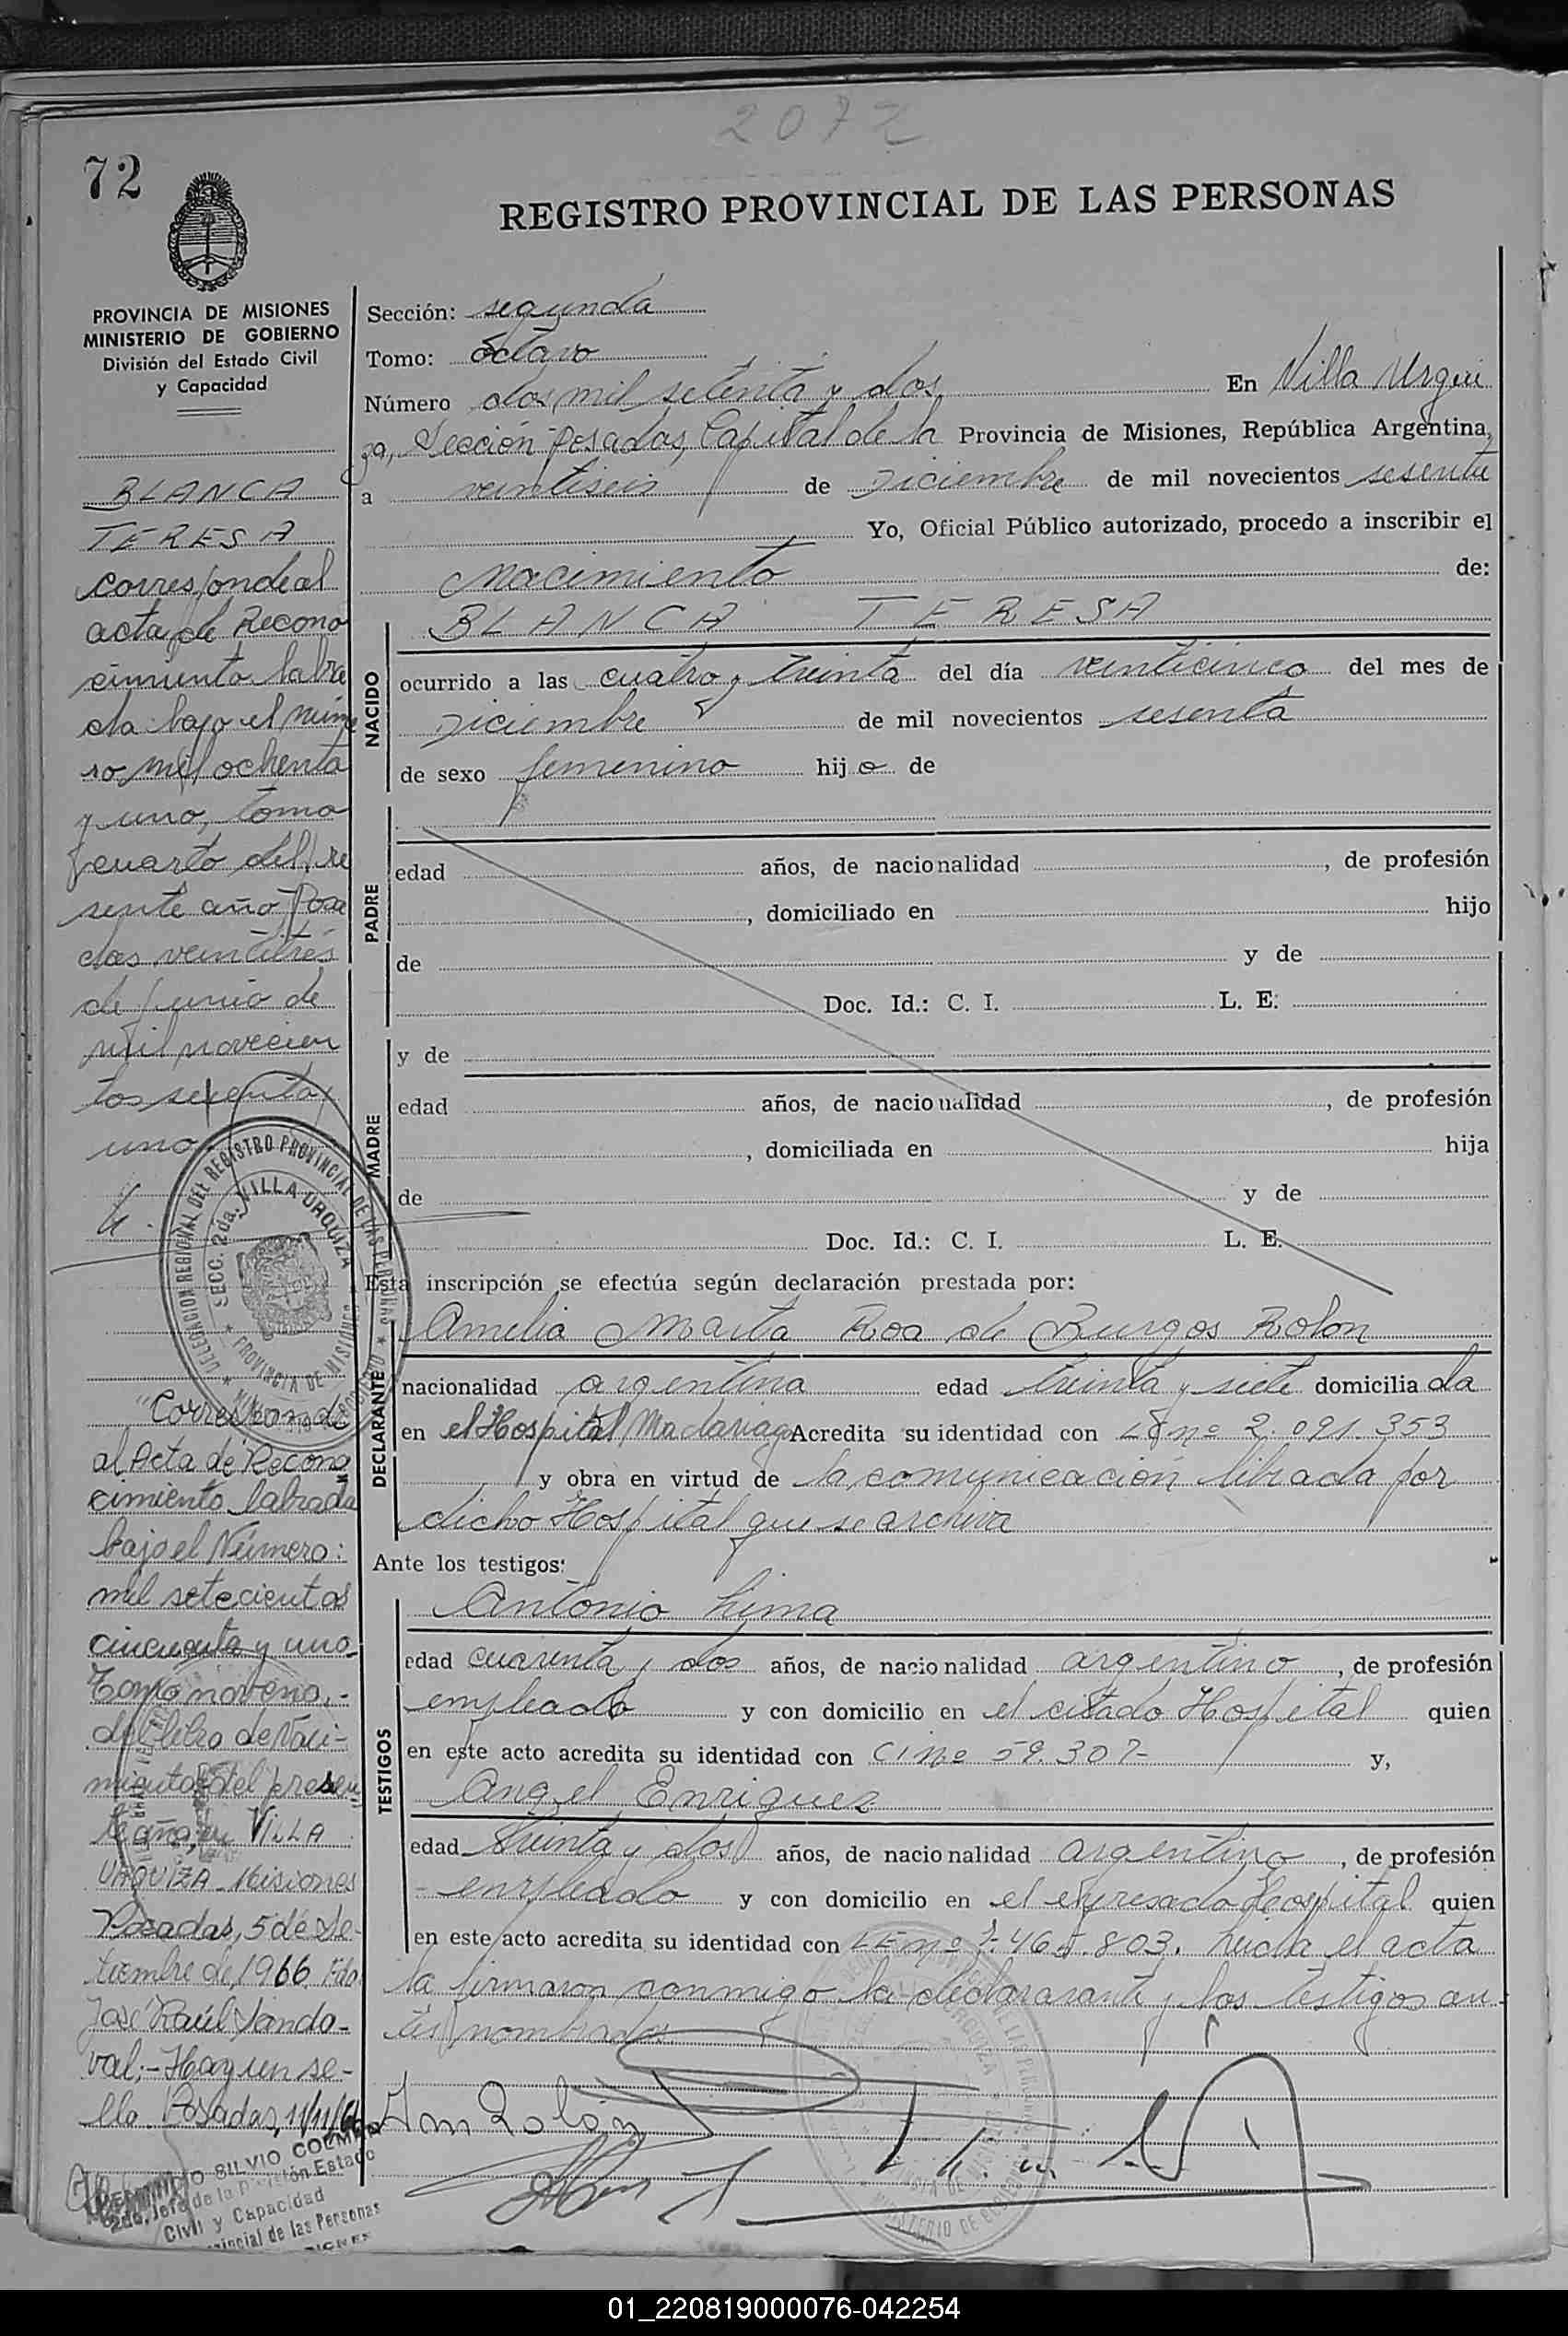 2072
72
REGISTRO PROVINCIAL DE LAS PERSONAS
PROVINCIA DE MISIONES
MINISTERIO DE GOBIERNO
División del Estado Civil
y Capacidad
BLANCA
TERESA
corresponde al
acta de Recono
cimiento labra
da bajo el núme
ro mil ochenta
y uno, tomo
cuarto del pre
sente año Posa
das veintitrés
de junio de
mil novecien
tos sesenta y
uno
DELEGACION REGIONAL DEL REGISTRO PROVINCIAL DE LAS PERSONAS
SECC. 2da. VILLA URQUIZA
* PROVINCIA DE MISIONES *
"Corresponde
al Acta de Recono
cimiento labrada
bajo el Número:
mil setecientos
cincuenta y uno
Tomo noveno.-
del libro de Naci-
mientos del presen
te año, en VILLA
URQUIZA - Misiones
Posadas, 5 de Se-
tiembre de 1966. Fdo
José Raúl Sando-
val.- Hay un se-
llo. Posadas, 11/11/66
SILVIO
2do. Jefe de la División Estado
Civil y Capacidad
Provincial de las Personas
Sección: segunda
Tomo: octavo
Número dos mil setenta y dos En Villa Urqui
za, Sección Posadas, Capital de la Provincia de Misiones, República Argentina,
a veintiseis de Diciembre de mil novecientos sesenta
Yo, Oficial Público autorizado, procedo a inscribir el
Nacimiento de:
BLANCA TERESA
NACIDO
ocurrido a las cuatro y treinta del día veinticinco del mes de
Diciembre de mil novecientos sesenta
de sexo femenino hija de
PADRE
edad años, de nacionalidad , de profesión
, domiciliado en hijo
de y de
Doc. Id.: C. I. L. E.
MADRE
y de
edad años, de nacionalidad , de profesión
, domiciliada en hija
de y de
Doc. Id.: C. I. L. E.
Esta inscripción se efectúa según declaración prestada por:
DECLARANTE
Amelia Marta Roa de Burgos Rolon
nacionalidad argentina edad treinta y siete domiciliada
en el Hospital Madariaga Acredita su identidad con LC nº 2.091.353
y obra en virtud de la comunicación librada por
dicho Hospital que se archiva
Ante los testigos:
TESTIGOS
Antonio Lima
edad cuarenta y dos años, de nacionalidad argentino, de profesión
empleado y con domicilio en el citado Hospital quien
en este acto acredita su identidad con CI nº 59.307- y,
Angel Enriquez
edad treinta y dos años, de nacionalidad argentino, de profesión
- empleado y con domicilio en el expresado Hospital quien
en este acto acredita su identidad con LE nº 7.465.803. Leida el acta
la firmaron conmigo la declararante y los testigos an-
tes nombrados.
Am Rolón
01_220819000076-042254